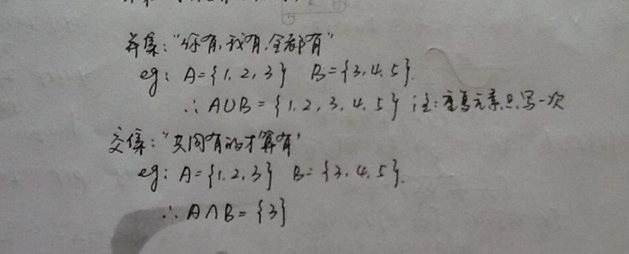 并集："你有,我有,全都有"
eg: A={1,2,3} B={3,4,5}.
∴ A∪B={1,2,3,4,5} 注:重复元素只写一次
交集："共同有的才算有"
eg: A={1,2,3} B={3,4,5}.
∴ A∩B={3}